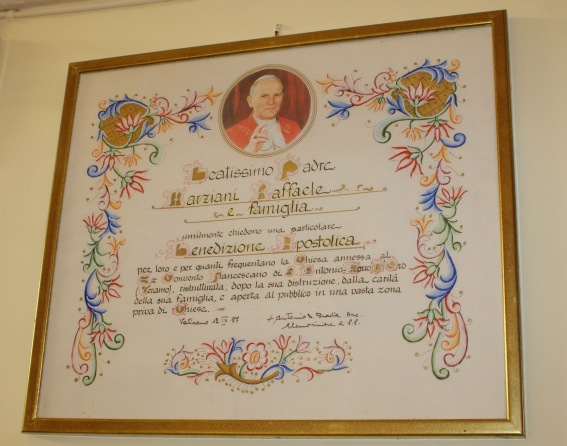 Beatissimo Padre
Marziani Raffaele
e famiglia
umilmente chiedono una particolare
Benedizione Apostolica
per loro e per quanti frequentano la Chiesa annessa al
Ex Convento Francescano di S. Antonio,
(Teramo), ristrutturata, dopo la sua distruzione, dalla carità
della sua famiglia, e aperta al pubblico in una vasta zona
priva di Chiese.
Vaticano
+ Antonio M. Travia Arc.
Elemosiniere di S.S.